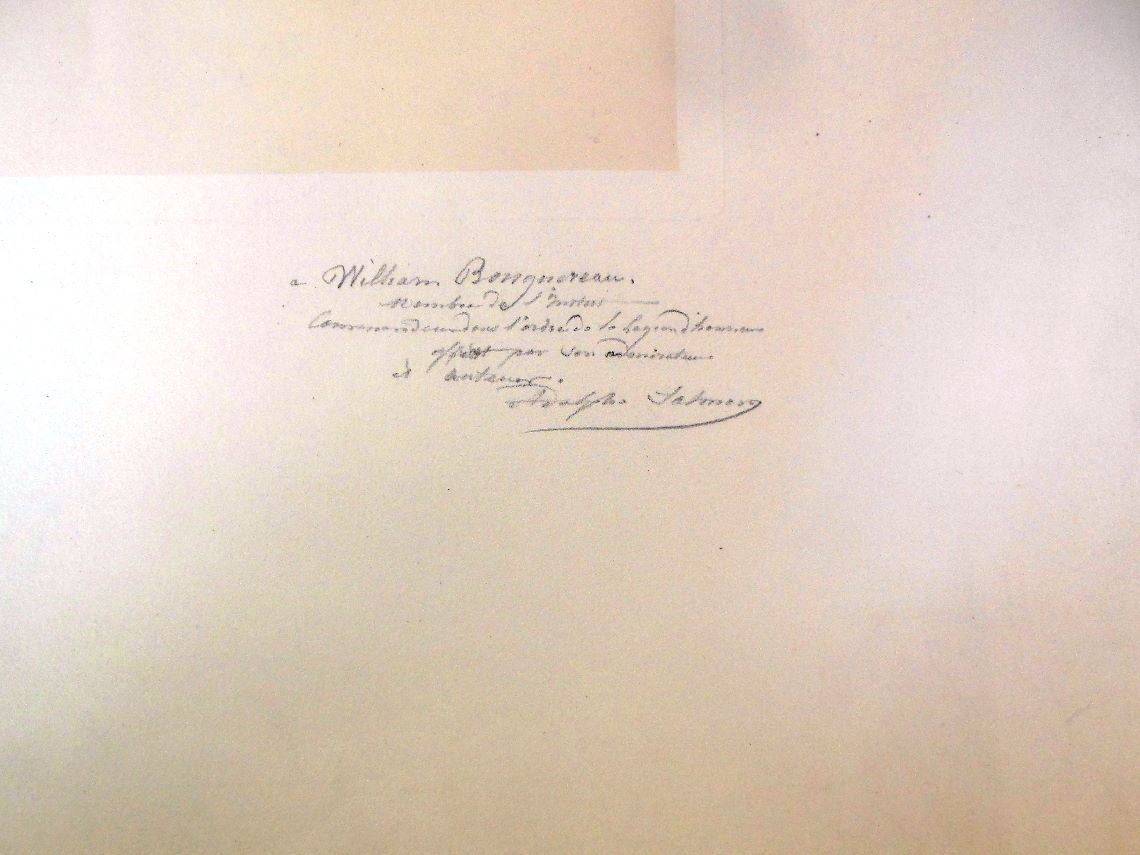 a William Bouguereau.
Membre de l'Institut
Commandeur dans l'ordre de la Legion d'honneur
offert par son admirateur
et auteur.
Adolphe Salmon